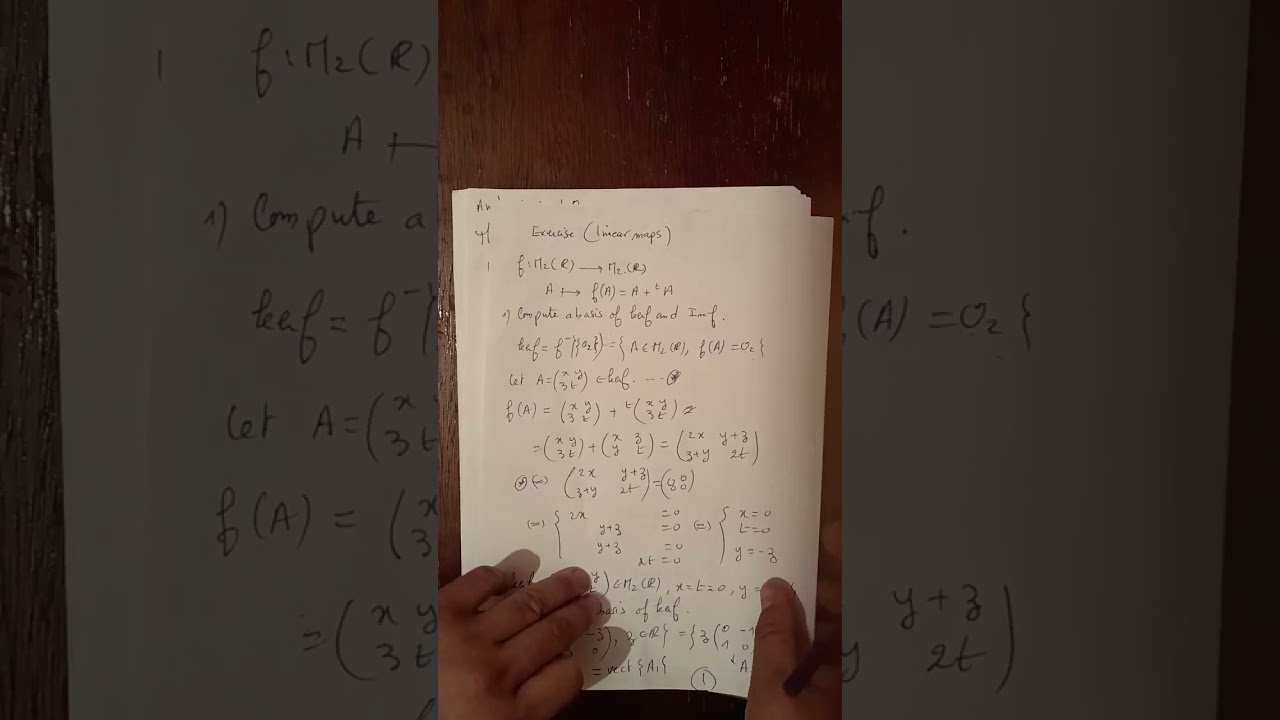 Exercise (linear maps)
f: M₂(ℝ) ⟶ M₂(ℝ)
A ⟼ f(A) = A + ᵗA
1) Compute a basis of kerf and Imf.
kerf = f⁻¹({O₂}) = { A ∈ M₂(ℝ), f(A) = O₂ {
Let A = (x y / z t) ∈ kerf. --- ⊛
f(A) = (x y / z t) + ᵗ(x y / z t)
= (x y / z t) + (x z / y t) = (2x y+z / z+y 2t)
⊛ (=) (2x y+z / z+y 2t) = (0 0 / 0 0)
(=) { 2x = 0 (=) { x = 0
y+z = 0 t = 0
y+z = 0 y = -z
2t = 0
∈ M₂(ℝ), x = t = 0, y =
basis of kerf.
-z / 0), z ∈ ℝ} = { z (0 -1 / 1 0
= vect { A₁ {
A
1